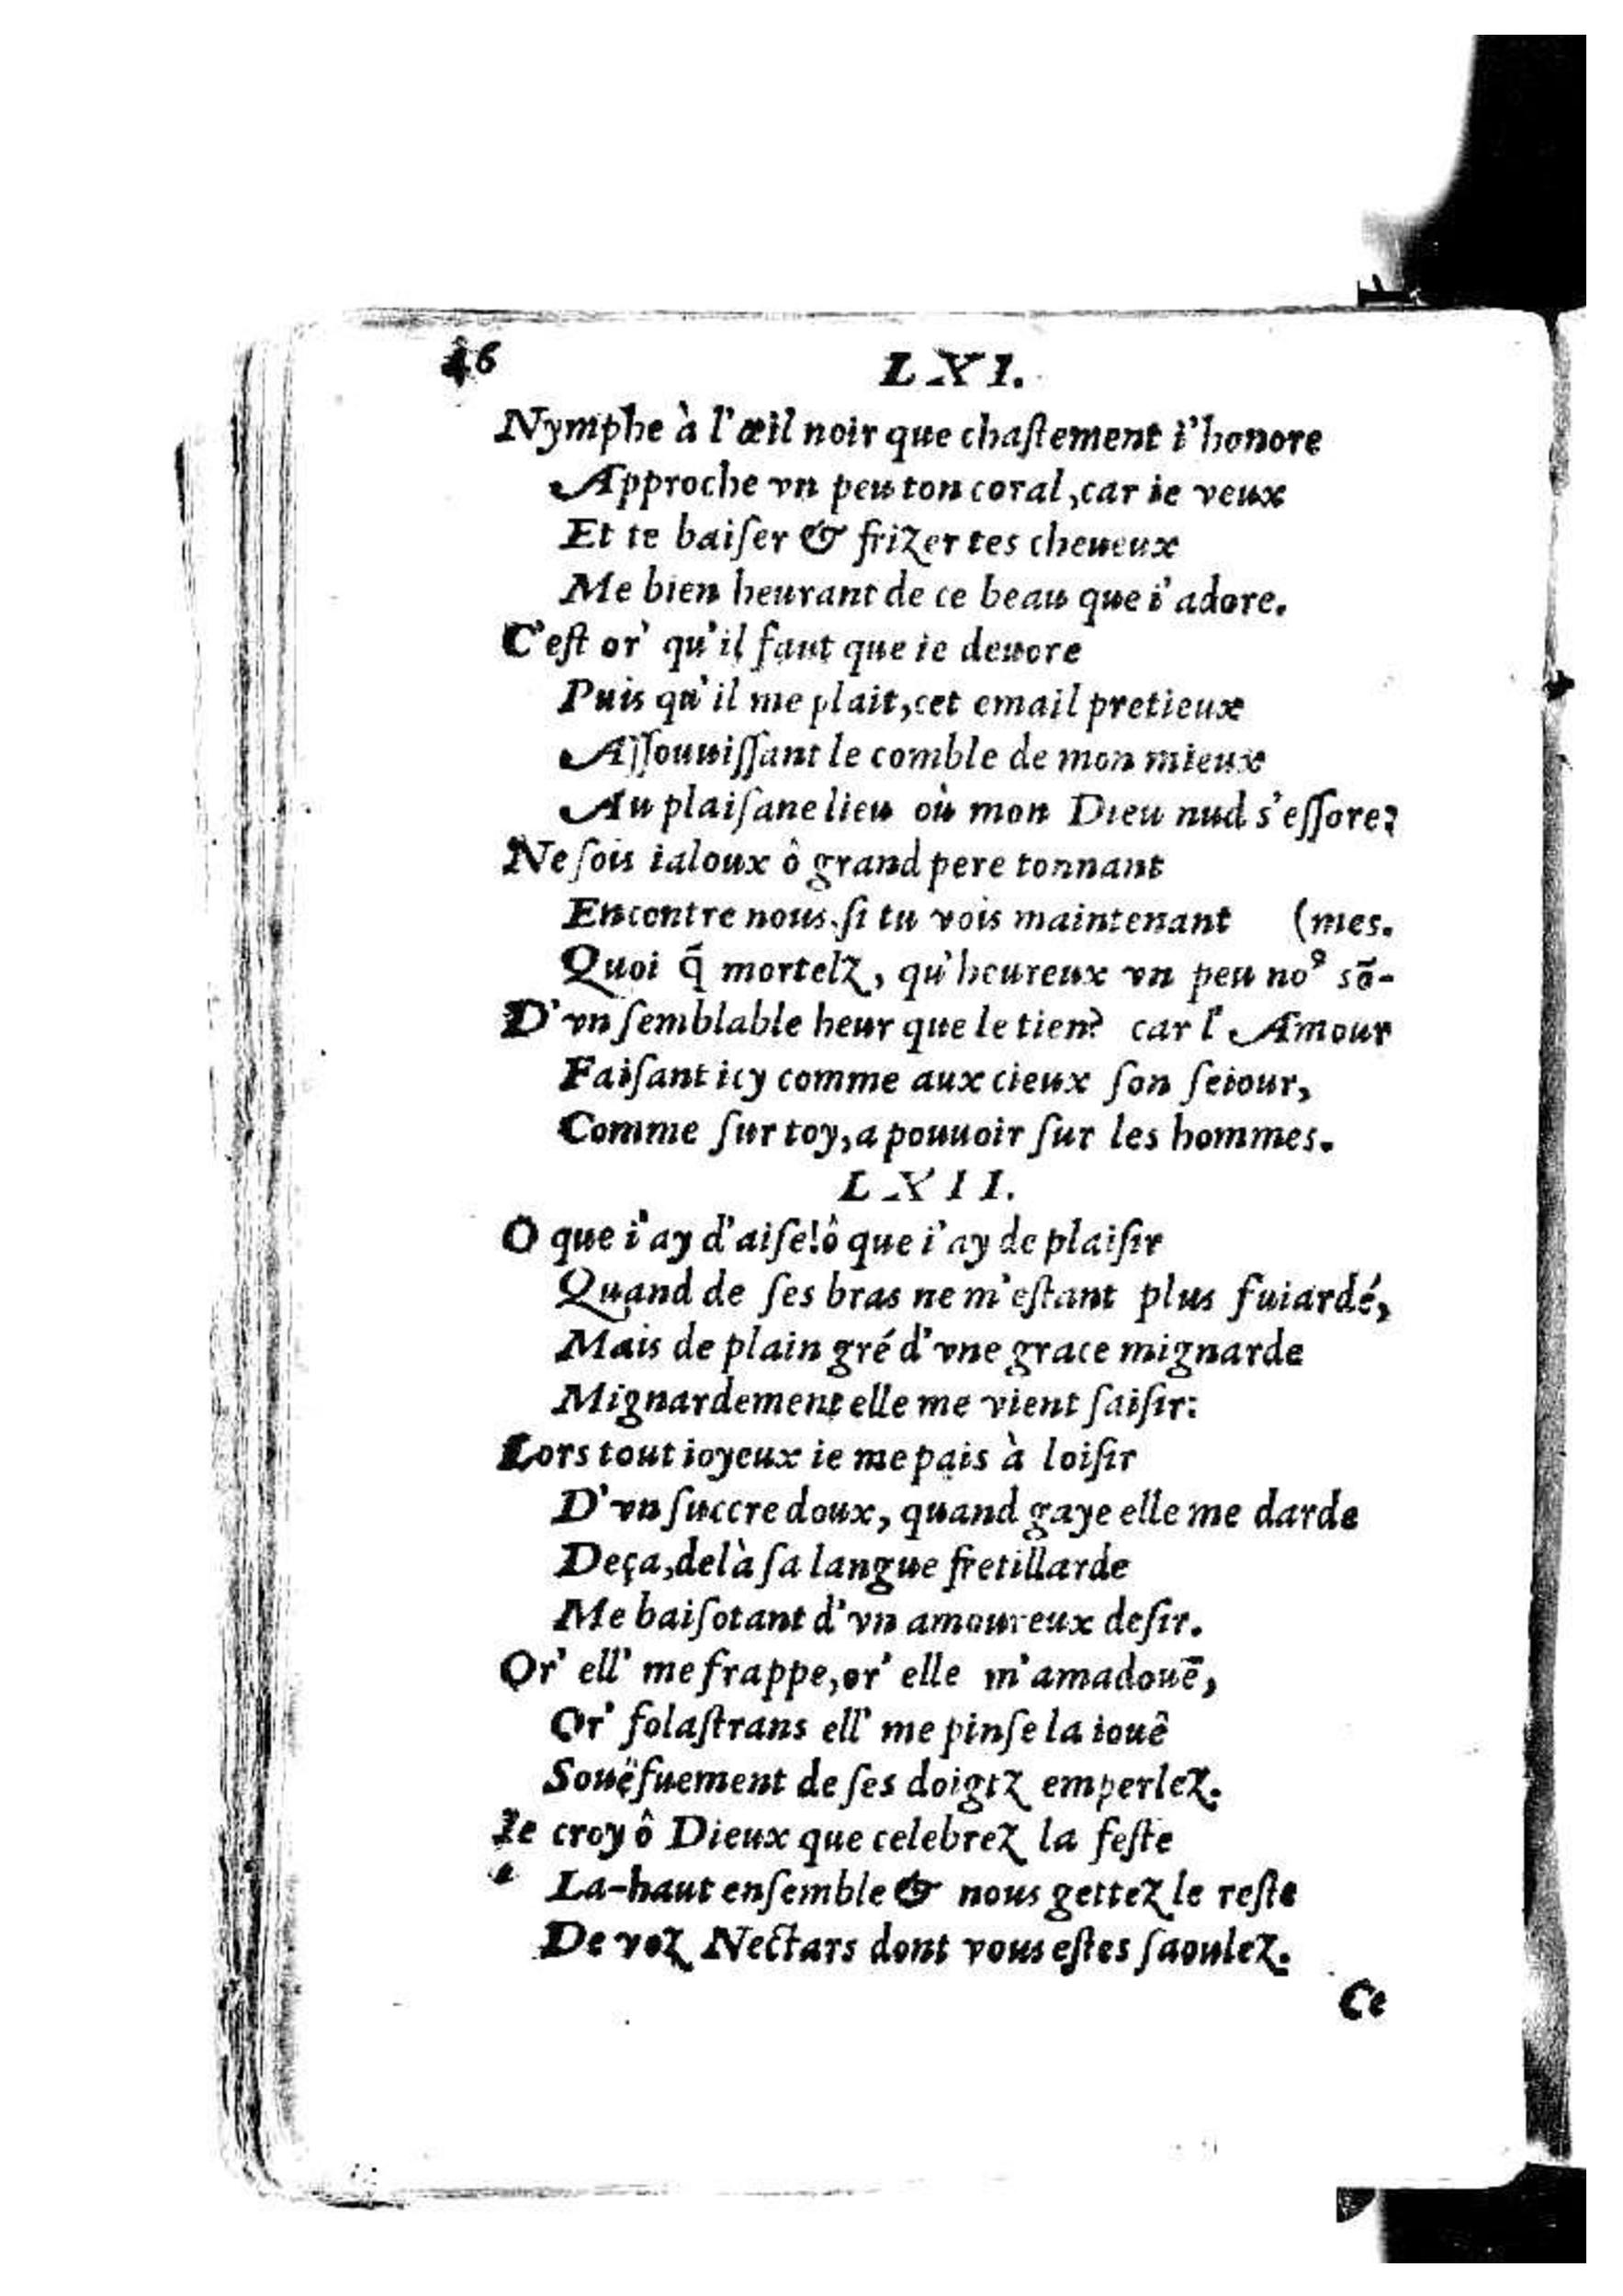 46
LXI.
Nymphe à l'œil noir que chaſtement i'honore
Approche vn peu ton coral, car ie veux
Et te baiſer & frizer tes cheueux
Me bien heurant de ce beau que i'adore.
C'eſt or' qu'il faut que ie deuore
Puis qu'il me plait, cet email pretieux
Aſſouuiſſant le comble de mon mieux
Au plaiſane lieu où mon Dieu nud s'eſſore?
Ne ſois ialoux ô grand pere tonnant
Encontre nous, ſi tu vois maintenant (mes.
Quoi q̃ mortelz, qu'heureux vn peu noꝰ sõ-
D'vn ſemblable heur que le tien? car l'Amour
Faiſant icy comme aux cieux ſon ſeiour,
Comme ſur toy, a pouuoir ſur les hommes.
LXII.
O que i'ay d'aiſe! ô que i'ay de plaiſir
Quand de ſes bras ne m'eſtant plus fuiardé,
Mais de plain gré d'vne grace mignarde
Mignardement elle me vient ſaiſir:
Lors tout ioyeux ie me pais à loiſir
D'vn ſuccre doux, quand gaye elle me darde
Deça, delà ſa langue fretillarde
Me baiſotant d'vn amoureux deſir.
Or' ell' me frappe, or' elle m'amadouē,
Or' folaſtrans ell' me pinſe la iouê
Souëfuement de ſes doigtz emperlez.
Ie croy ô Dieux que celebrez la feſte
La-haut enſemble & nous gettez le reſte
De voz Nectars dont vous eſtes ſaoulez.
Ce